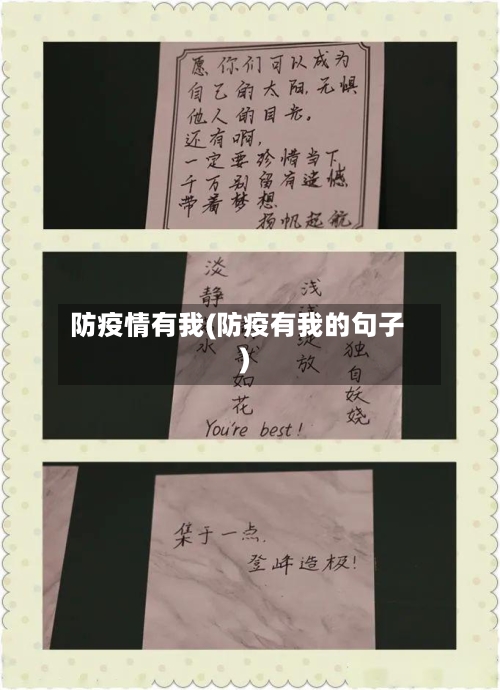 愿你们可以成为
自己的太阳,无惧
他人的目光。
还有啊,
一定要珍惜当下
千万别留有遗憾
带着梦想
扬帆起航
防疫情有我(防疫有我的句子
)
淡静
水
如花
浅
绽放
独自妖娆
You're best!
集于一点,
登峰造极!